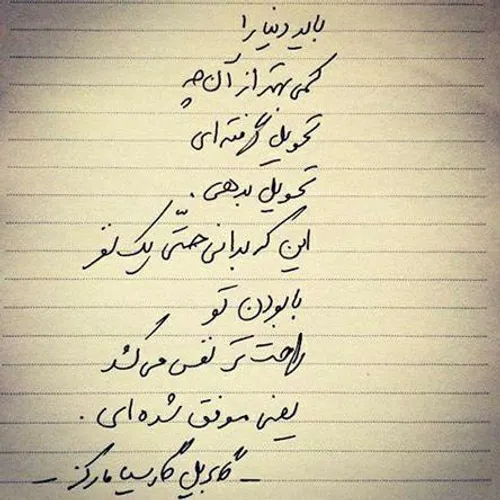 باید دنیا را
کمی بهتر از آن چه
تحویل گرفته ای
تحویل بدهی .
این که بدانی حتّی یک نفر
با بودن تو
راحت تر نفس می کشد
یعنی موفق شده ای .
- گابریل گارسیا مارکز -